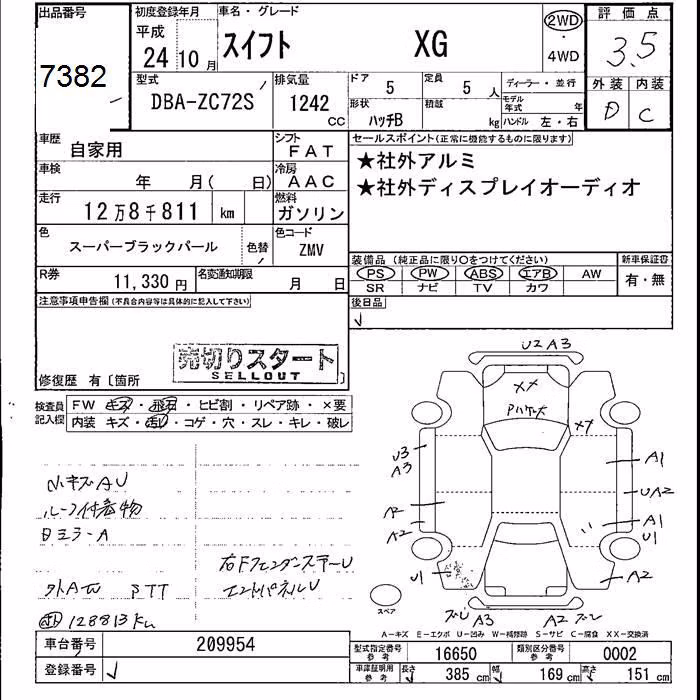 出品番号
7382
初度登録年月
平成
24 10 月
車名・グレード
スイフト XG
2WD
・
4WD
評価点
3.5
外装 内装
D C
型式
DBA-ZC72S
排気量
1242 CC
ドア
5
定員
5 人
形状
ハッチB
積載
kg
ディーラー・並行
モデル年式 年
ハンドル 左・右
車歴
自家用
シフト
FAT
車検
年 月( 日)
冷房
AAC
走行
12万8千811 km
燃料
ガソリン
色
スーパーブラックパール
色替
色コード
ZMV
R券
11,330 円
名変通知期限
月 日
セールスポイント(正常に機能するものに限ります)
★社外アルミ
★社外ディスプレイオーディオ
装備品(純正品に限り○をつけてください)
PS PW ABS エアB AW
SR ナビ TV カワ
新車保証書
有・無
後日品
注意事項申告欄(不具合内容等は具体的に記入して下さい)
売切りスタート
SELLOUT
修復歴 有〔箇所 〕
検査員記入欄
FW キズ・飛石・ヒビ割・リペア跡・×要
内装 キズ・汚レ・コゲ・穴・スレ・キレ・破レ
小キズAU
ルーフ付着物
日ミラーA
右FフェンダーステーU
エンドパネルU
外AW PTT
128813km
U2 A3
XX
Pハケ大
XX
U3
A3
A1
A2
UA2
A2
A1
U1
U1
A2
スペア
ズレ A3 A2 ズレ
A-キズ E-エクボ U-凹み W-補修跡 S-サビ C-腐食 XX-交換済
車台番号
209954
登録番号
型式指定番号 参考
16650
類別区分番号 参考
0002
車庫証明用 参考
長さ 385 cm 幅 169 cm 高さ 151 cm